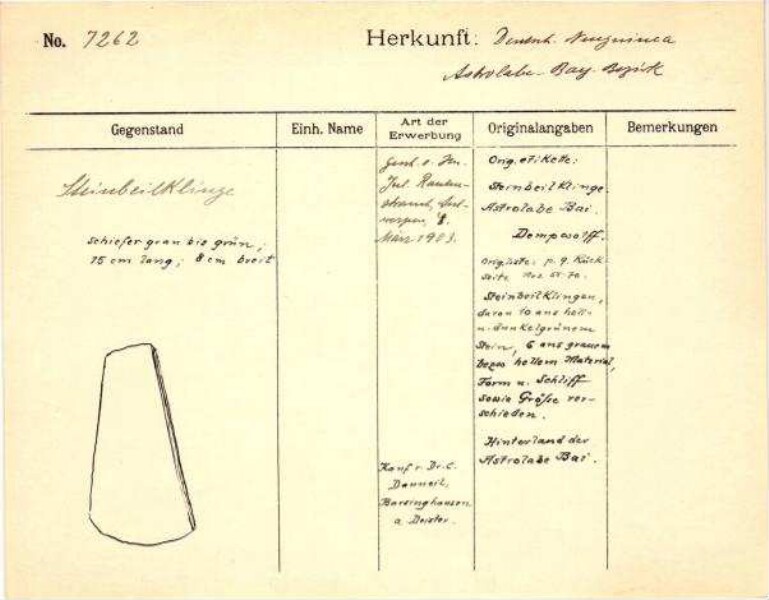 No. 7262
Herkunft: Deutsch. Neuguinea
Astrolabe-Bay-Bezirk
Gegenstand
Einh. Name
Art der
Erwerbung
Originalangaben
Bemerkungen
Steinbeilklinge
schiefergrau bis grün;
15 cm lang; 8 cm breit
Gesch. v. Hn.
Jul. Rauten-
strauch, Ant-
werpen, 8.
März 1903.
Kauf v. Dr. C.
Danneil,
Barsinghausen
a. Deister.
Orig. etikette:
Steinbeilklinge
Astrolabe Bai.
Dempwolff.
Orig. liste: p. 9. Rück-
seite Nos 55-70.
Steinbeilklingen,
davon 10 aus hell-
u. dunkelgrünem
Stein, 6 aus grauem
bezw hellem Material,
Form u. Schliff
sowie Größe ver-
schieden.
Hinterland der
Astrolabe Bai.